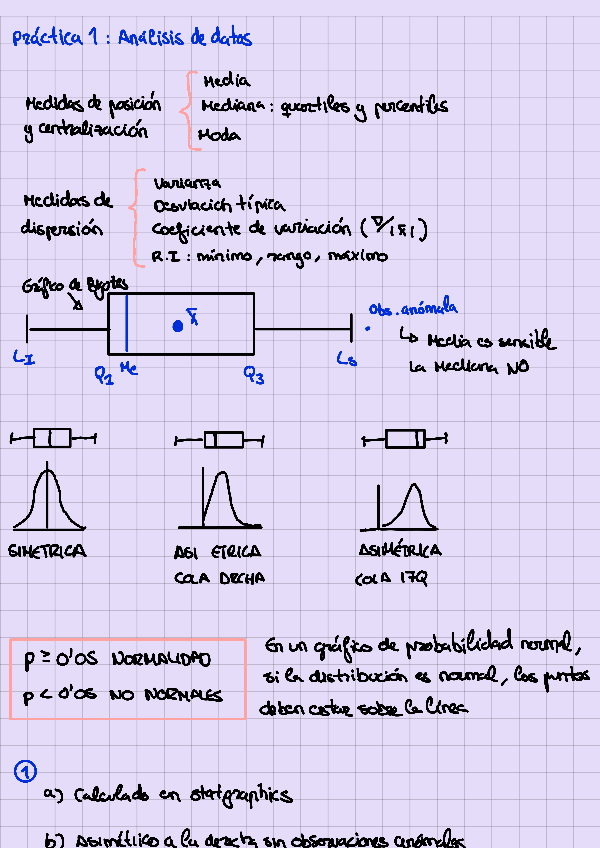 Práctica 1: Análisis de datos
Media
Medidas de posición
y centralización
Mediana: quartiles y percentiles
Moda
Medidas de
dispersión
Varianza
Desviación típica
Coeficiente de variación (∇/|x̄|)
R.I: mínimo, rango, máximo
Gráfico de Bigotes
x̄
Obs. anómala
↳ Media es sensible
la Mediana NO
LI
Q1
Me
Q3
Ls
SIMETRICA
ASI ETRICA
COLA DRCHA
ASIMÉTRICA
COLA IZQ
P ≥ 0'05 NORMALIDAD
P < 0'05 NO NORMALES
En un gráfico de probabilidad normal,
si la distribución es normal, los puntos
deben estar sobre la línea
1
a) Calculado en statgraphics
b) Asimétrico a la derecha sin observaciones anómalas